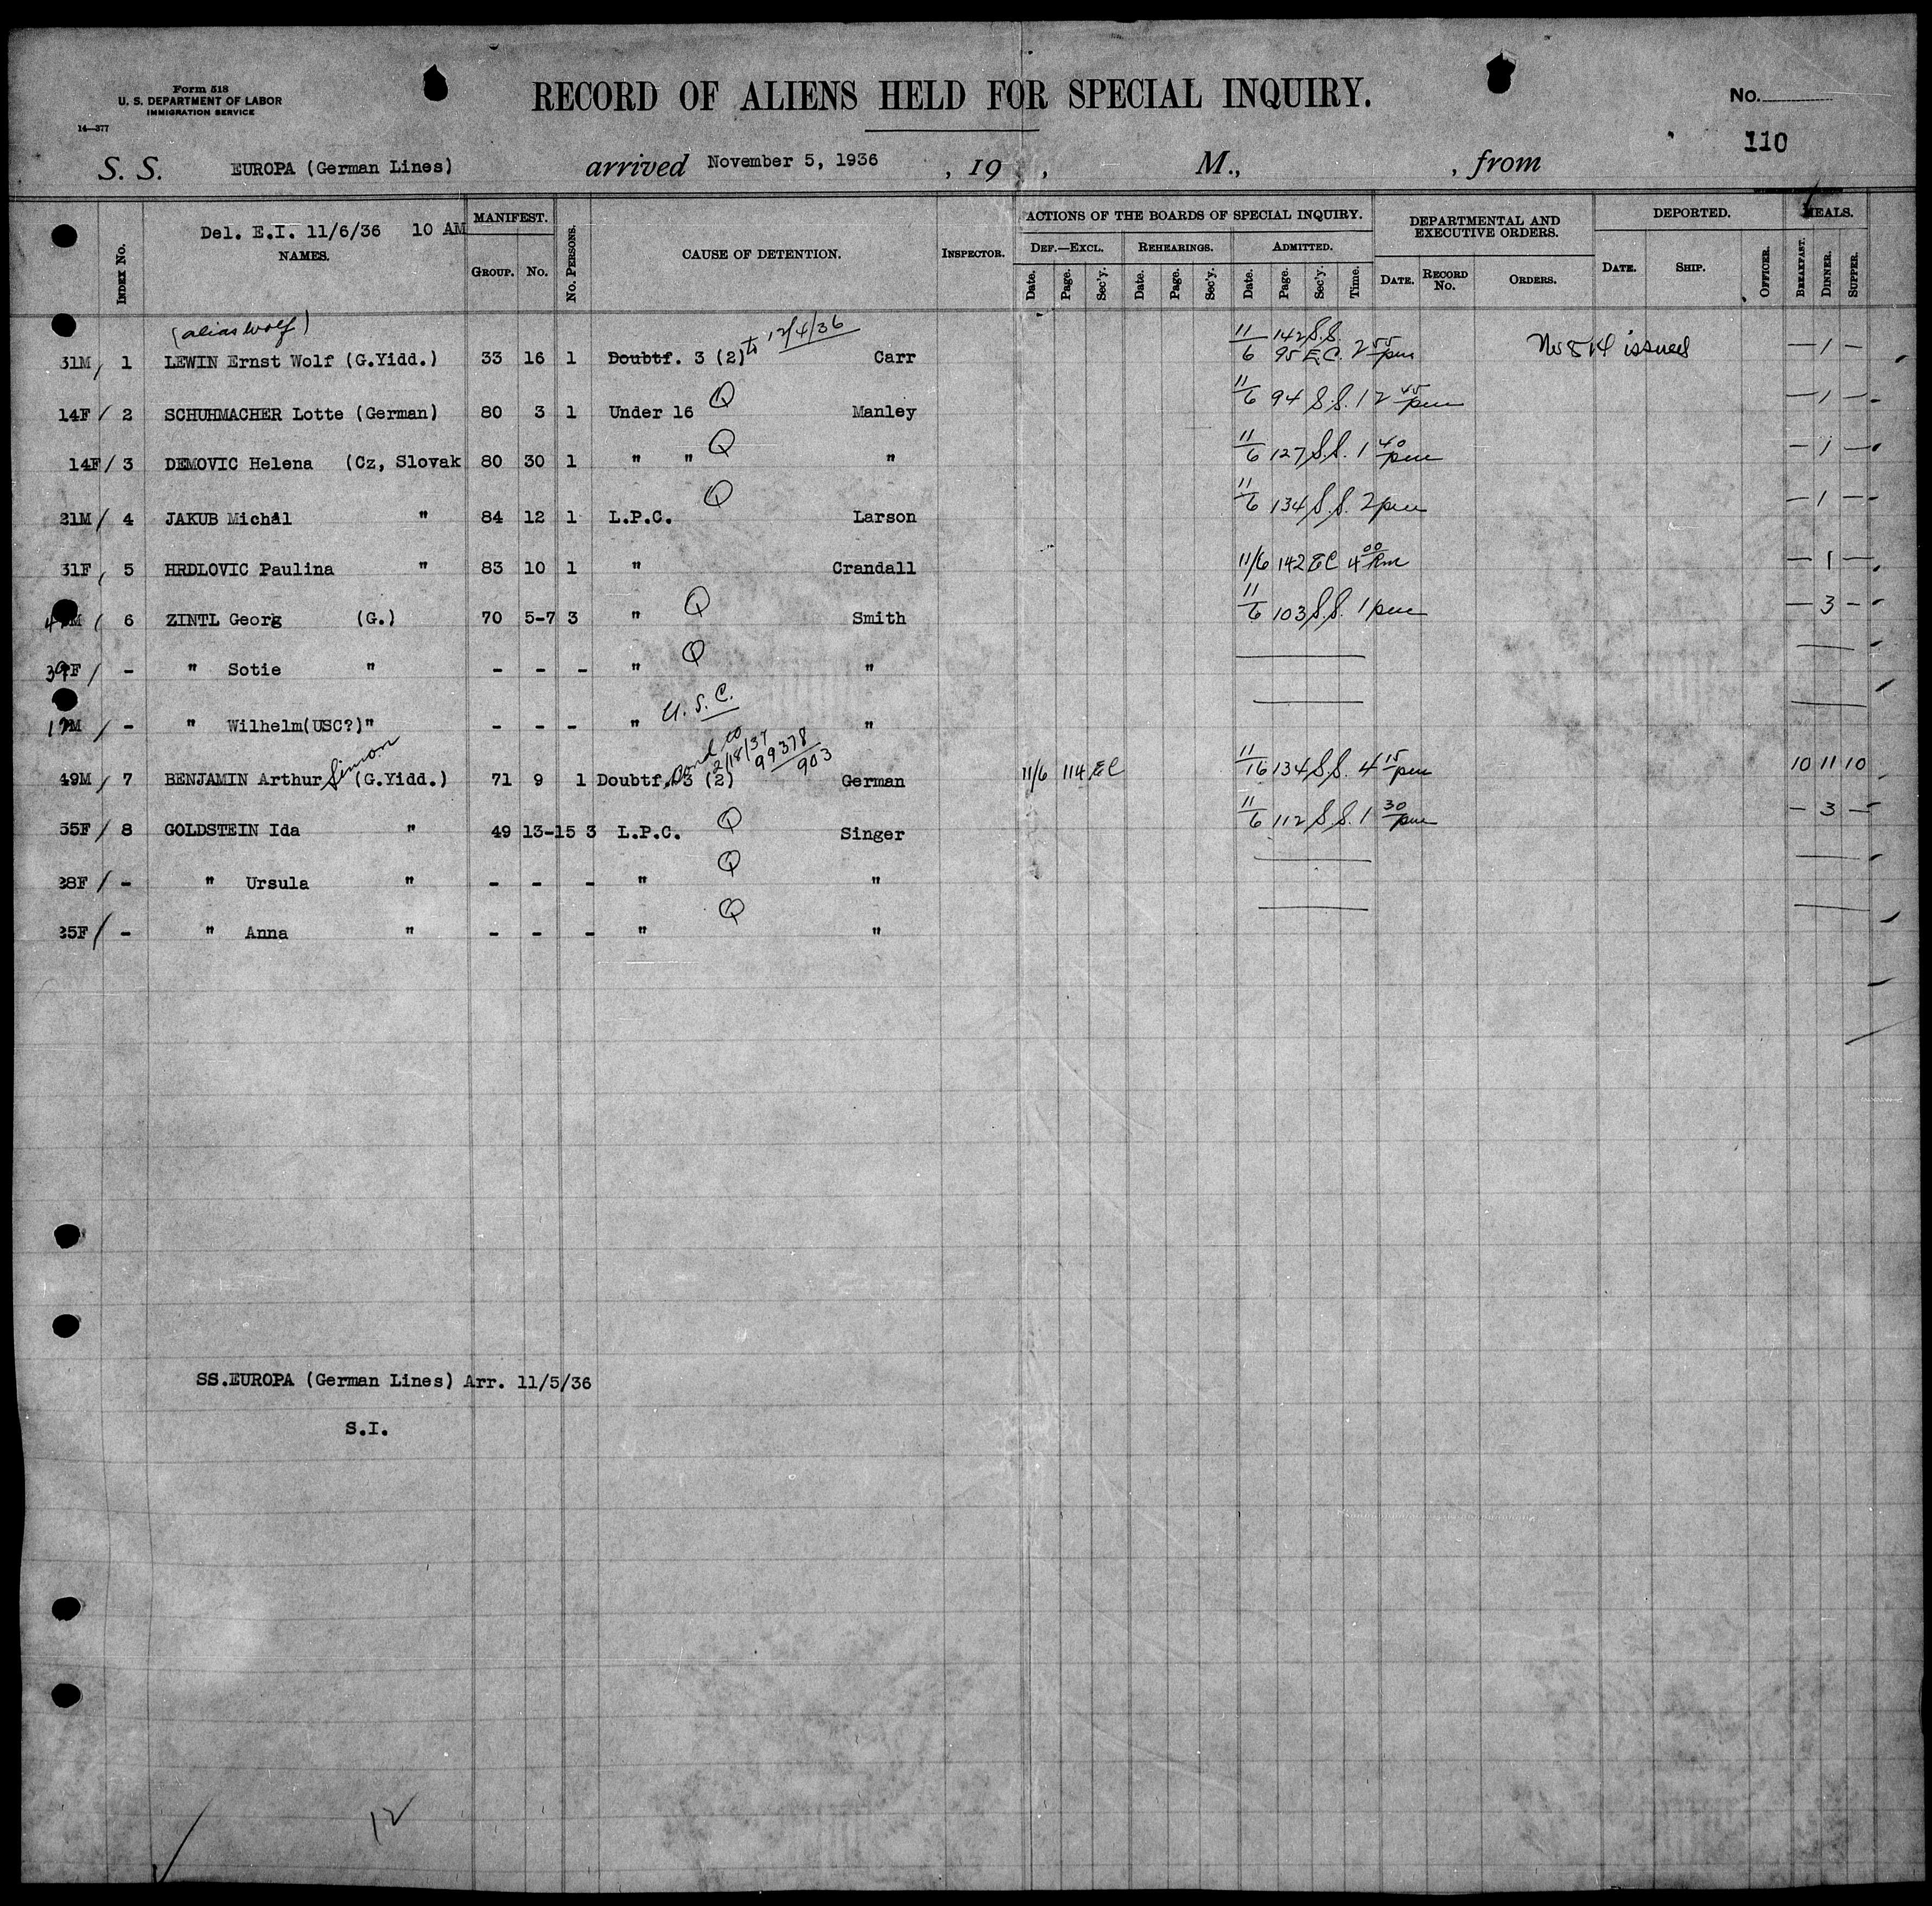 Form 518
U. S. DEPARTMENT OF LABOR
IMMIGRATION SERVICE
14—377
RECORD OF ALIENS HELD FOR SPECIAL INQUIRY.
No.
110
S. S. EUROPA (German Lines) arrived November 5, 1936, 19 , M., , from
Del. E.I. 11/6/36 10 AM
INDEX No. NAMES. MANIFEST. GROUP. No. No. PERSONS. CAUSE OF DETENTION. INSPECTOR. ACTIONS OF THE BOARDS OF SPECIAL INQUIRY. DEF.—EXCL. Date. Page. Sec'y. REHEARINGS. Date. Page. Sec'y. ADMITTED. Date. Page. Sec'y. Time. DEPARTMENTAL AND EXECUTIVE ORDERS. DATE. RECORD No. ORDERS. DEPORTED. DATE. SHIP. OFFICER. MEALS. BREAKFAST. DINNER. SUPPER.
(alias Wolf)
31M, 1 LEWIN Ernst Wolf (G.Yidd.) 33 16 1 Doubtf. 3 (2) to 12/4/36 Carr 11/6 142 S.S. 95 E.C. 2 55 pm issued — 1 —
14F / 2 SCHUHMACHER Lotte (German) 80 3 1 Under 16 Q Manley 11/6 94 S.S. 12 45 pm — 1 —
14F / 3 DEMOVIC Helena (Cz, Slovak 80 30 1 " " Q " 11/6 127 S.S. 1 40 pm — 1 —
21M / 4 JAKUB Michal " 84 12 1 L.P.C. Q Larson 11/6 134 S.S. 2 pm — 1 —
31F, 5 HRDLOVIC Paulina " 83 10 1 " Crandall 11/6 142 EC 4 00 Pm — 1 —
M / 6 ZINTL Georg (G.) 70 5-7 3 " Q Smith 11/6 103 S.S. 1 pm — 3 —
39F / - " Sotie " - - - " Q "
M / - " Wilhelm(USC?)" - - - " U.S.C. "
49M / 7 BENJAMIN Arthur Simon (G.Yidd.) 71 9 1 Doubtf. 3 (2) Bond to 2/18/37 99378/903 German 11/6 114 EC 11/16 134 S.S. 4 15 pm 10 11 10
55F / 8 GOLDSTEIN Ida " 49 13-15 3 L.P.C. Q Singer 11/6 112 S.S. 1 30 pm — 3 —
28F / - " Ursula " - - - " Q "
25F / - " Anna " - - - " Q "
SS.EUROPA (German Lines) Arr. 11/5/36
S.I.
12